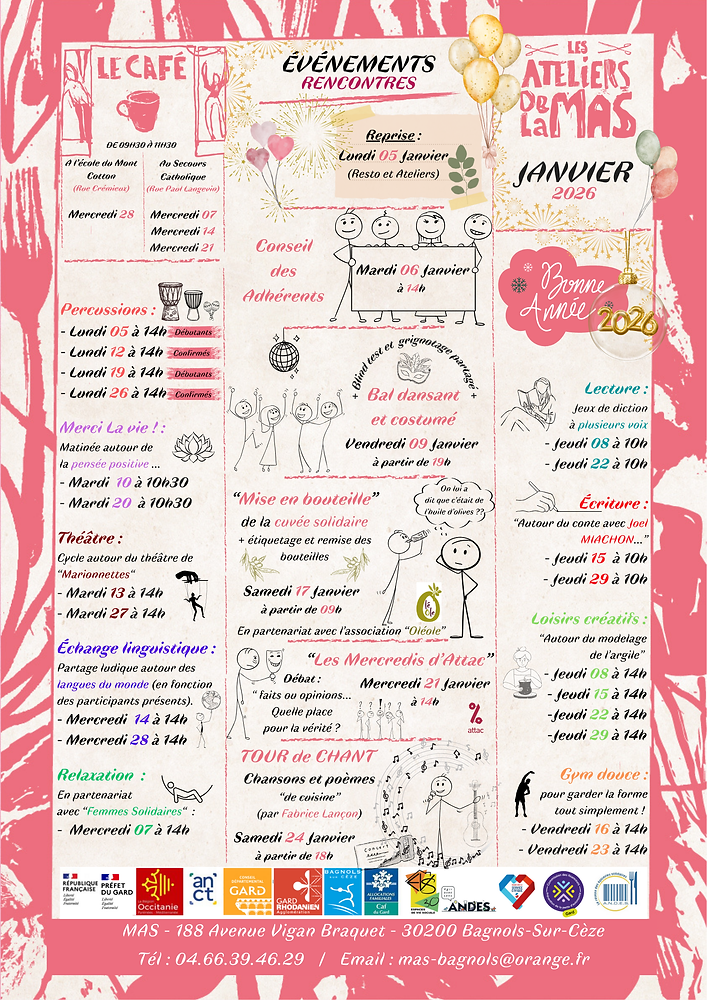 LE CAFÉ
DE 09H30 À 11H30
A l'école du Mont
Cotton
(Rue Crémieux)
Mercredi 28
Au Secours
Catholique
(Rue Paul Langevin)
Mercredi 07
Mercredi 14
Mercredi 21
ÉVÉNEMENTS
RENCONTRES
Reprise :
Lundi 05 Janvier
(Resto et Ateliers)
LES
ATELiERS
De
La MAS
JANVIER
2026
Bonne
Année
2026
Conseil
des
Adhérents
Mardi 06 Janvier
à 14h
Percussions :
- Lundi 05 à 14h Débutants
- Lundi 12 à 14h Confirmés
- Lundi 19 à 14h Débutants
- Lundi 26 à 14h Confirmés
Merci La vie ! :
Matinée autour de
la pensée positive ...
- Mardi 10 à 10h30
- Mardi 20 à 10h30
Théâtre :
Cycle autour du théâtre de
"Marionnettes"
- Mardi 13 à 14h
- Mardi 27 à 14h
Échange linguistique :
Partage ludique autour des
langues du monde (en fonction
des participants présents).
- Mercredi 14 à 14h
- Mercredi 28 à 14h
Relaxation :
En partenariat
avec "Femmes Solidaires" :
- Mercredi 07 à 14h
+ Blind test et grignotage partagé +
Bal dansant
et costumé
Vendredi 09 Janvier
à partir de 19h
"Mise en bouteille"
de la cuvée solidaire
+ étiquetage et remise des
bouteilles
On lui a
dit que c'était de
l'huile d'olives ??
Samedi 17 Janvier
à partir de 09h
En partenariat avec l'association "Oléole"
"Les Mercredis d'Attac"
Débat :
" faits ou opinions...
Quelle place
pour la vérité ?
Mercredi 21 Janvier
à 14h
%
attac
TOUR de CHANT
Chansons et poèmes
"de cuisine"
(par Fabrice Lançon)
Samedi 24 Janvier
à partir de 18h
Concert
Lecture :
Jeux de diction
à plusieurs voix
- Jeudi 08 à 10h
- Jeudi 22 à 10h
Écriture :
"Autour du conte avec Joel
MIACHON..."
-Jeudi 15 à 10h
- Jeudi 29 à 10h
Loisirs créatifs :
"Autour du modelage
de l'argile"
-Jeudi 08 à 14h
- Jeudi 15 à 14h
-Jeudi 22 à 14h
-Jeudi 29 à 14h
Gym douce :
pour garder la forme
tout simplement !
- Vendredi 16 à 14h
- Vendredi 23 à 14h
RÉPUBLIQUE
FRANÇAISE
Liberté
Égalité
Fraternité
PRÉFET
DU GARD
Liberté
Égalité
Fraternité
Occitanie
an
ct
GARD
GARD
RHODANIEN
Agglomération
BAGNOLS
SUR CÈZE
ALLOCATIONS
FAMILIALES
Caf
du Gard
ANDES
Gard
MAS - 188 Avenue Vigan Braquet - 30200 Bagnols-Sur-Cèze
Tél : 04.66.39.46.29 / Email : mas-bagnols@orange.fr